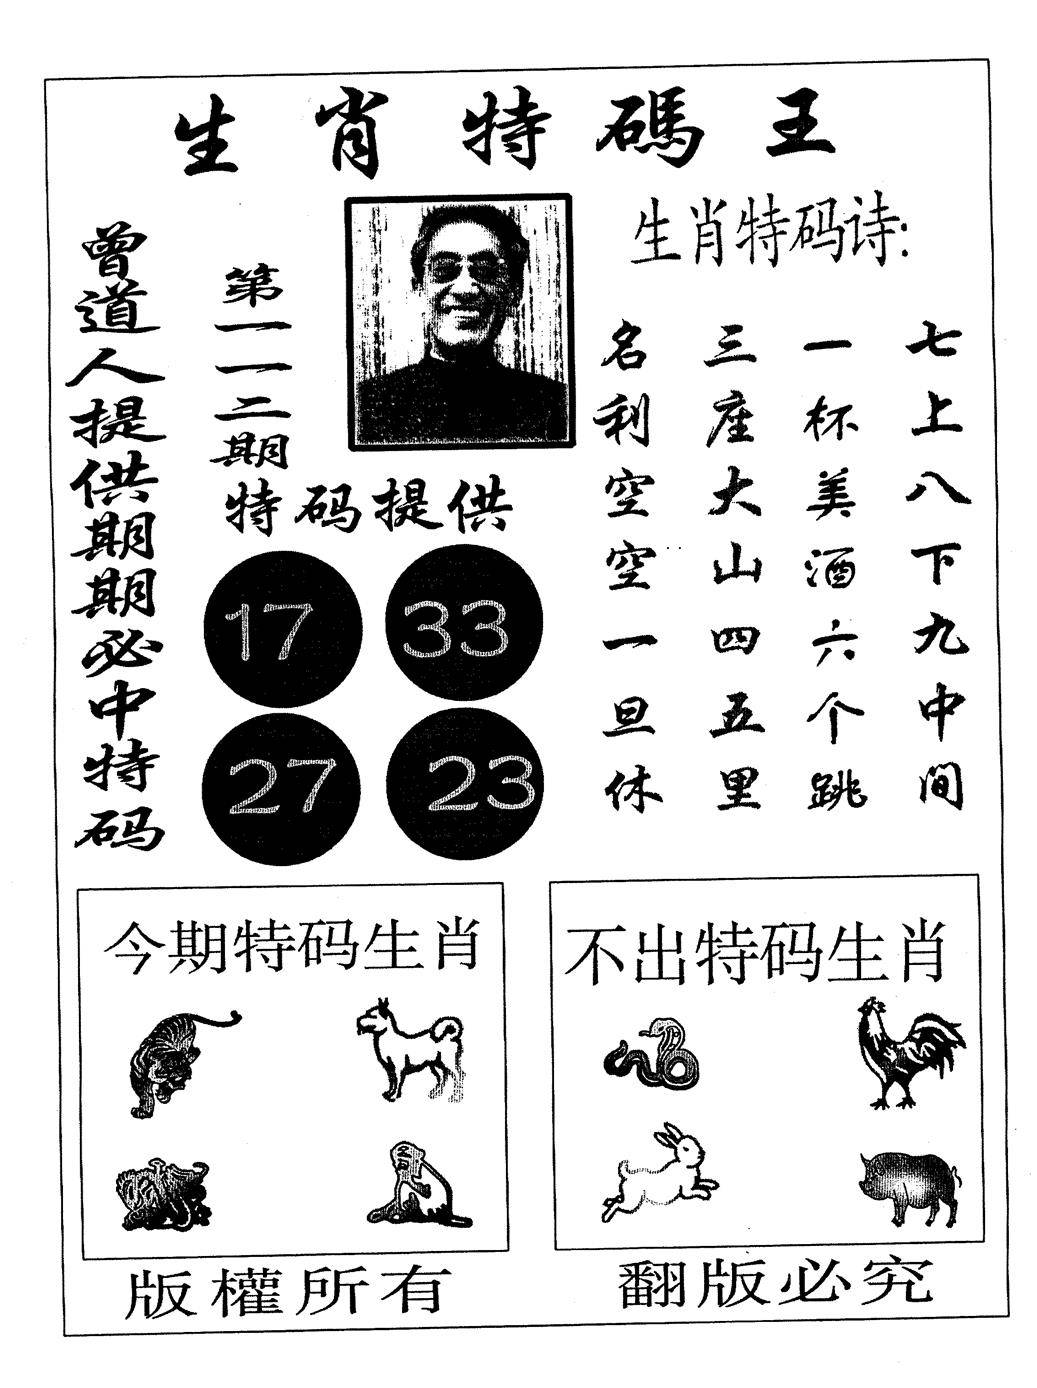 生肖特碼王
曾道人提供期期必中特码
第一一二期
生肖特码诗:
七上八下九中间
一杯美酒六个跳
三座大山四五里
名利空空一旦休
特码提供
17 33
27 23
今期特码生肖
不出特码生肖
版權所有
翻版必究